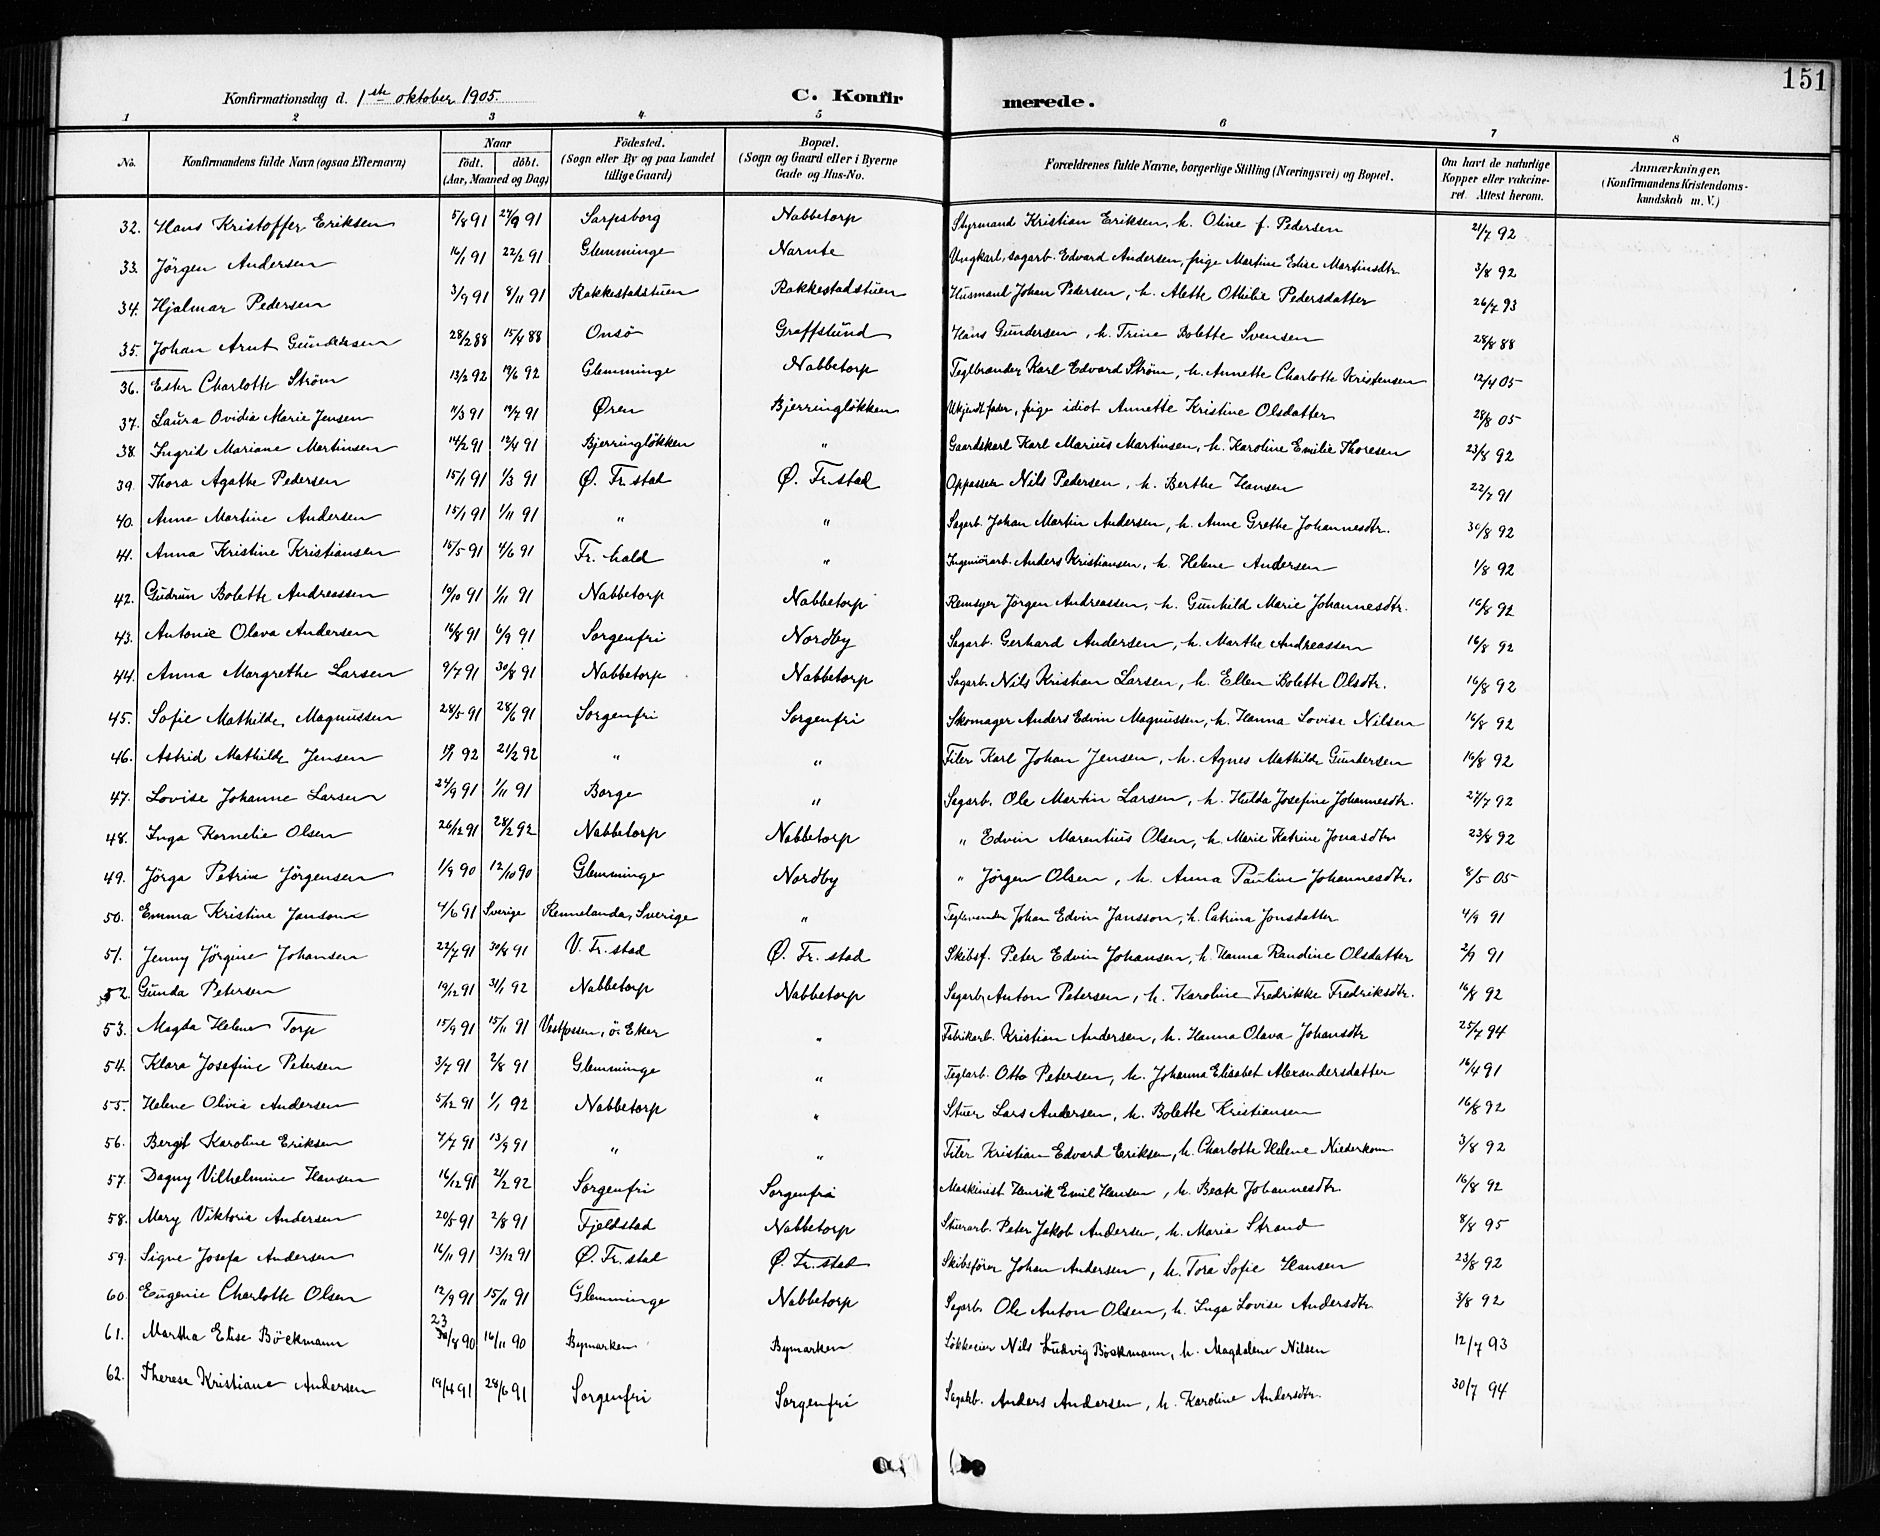 151
Konfirmationsdag d. 1ste oktober 1905. C. Konfirmerede.
1 2 3 4 5 6 7 8
No. Konfirmandens fulde Navn (ogsaa Efternavn) Naar födt. döbt. (Aar, Maaned og Dag) Födested. (Sogn eller By og paa Landet tillige Gaard) Bopæl. (Sogn og Gaard eller i Byerne Gade og Hus-No. Forældrenes fulde Navne, borgerlige Stilling (Næringsvei) og Bopæl. Om havt de naturlige Kopper eller vaccineret. Attest herom. Anmærkninger. (Konfirmandens Kristendomskundskab m. V.)
32. Hans Kristoffer Eriksen 5/8 91 27/9 91 Sarpsborg Nabbetorp Styrmand Kristian Eriksen, h. Oline f. Pedersen 21/7 92
33. Jörgen Andersen 16/1 91 22/2 91 Glemminge Narnte Ungkarl, sagarb. Edvard Andersen, pige Martine Elise Martinsdtr. 3/8 92
34. Hjalmar Pedersen 3/9 91 8/11 91 Rakkestadstuen Rakkestadstuen Husmand Johan Pedersen, h. Alette Othilie Pedersdatter 26/7 93
35. Johan Arnt Gundersen 28/2 88 15/4 88 Onsö Graffslund Hans Gundersen, h. Trine Bolette Svensen 28/8 88
36. Ester Charlotte Ström 13/2 92 19/6 92 Glemminge Nabbetorp Teglbrænder Karl Edvard Ström, h. Annette Charlotte Kristensen 12/4 05
37. Laura Ovidia Marie Jensen 11/3 91 19/7 91 Øren Bjerringlökken Ukjendt fader, pige idiot Annette Kristine Olsdatter 28/8 05
38. Ingrid Mariane Martinsen 14/2 91 12/4 91 Bjerringlökken " Gaardskarl Karl Marius Martinsen, h. Karoline Emilie Thoresen 23/8 92
39. Thora Agathe Pedersen 15/1 91 1/3 91 Ø. Fr.stad Ø. Fr.stad Oppasser Nils Pedersen, h. Berthe Hansen 22/7 91
40. Anne Martine Andersen 15/9 91 1/11 91 " " Sagarb. Johan Martin Andersen, h. Anne Grethe Johannesdtr. 30/8 92
41. Anna Kristine Kristiansen 15/5 91 4/6 91 Fr. hald " Ingeniörarb. Anders Kristiansen, h. Helene Andersen 1/8 92
42. Gudrun Bolette Andreassen 10/10 91 1/11 91 Nabbetorp Nabbetorp Remsyer Jörgen Andreassen, h. Gunhild Marie Johannesdtr. 16/8 92
43. Antonie Olava Andersen 16/8 91 6/9 91 Sorgenfri Nordby Sagarb. Gerhard Andersen, h. Marthe Andreassen 16/8 92
44. Anna Margrethe Larsen 9/7 91 30/8 91 Nabbetorp Nabbetorp Sagarb. Nils Kristian Larsen, h. Ellen Bolette Olsdtr. 16/8 92
45. Sofie Mathilde Magnussen 28/5 91 28/6 91 Sorgenfri Sorgenfri Skomager Anders Edvin Magnussen, h. Hanna Lovise Nilsen 16/8 92
46. Astrid Mathilde Jensen 92 21/2 92 " " Filer Karl Johan Jensen, h. Agnes Mathilde Gundersen 16/8 92
47. Lovise Johanne Larsen 24/9 91 1/11 91 Borge " Sagarb. Ole Martin Larsen, h. Hulda Josefine Johannesdtr. 27/7 92
48. Inga Kornelie Olsen 26/12 91 28/2 92 Nabbetorp Nabbetorp " Edvin Marentius Olsen, h. Marie Katrine Jonasdtr 23/8 92
49. Jörga Petrine Jörgensen 1/9 90 12/10 90 Glemminge Nordby " Jörgen Olsen, h. Anna Pauline Johannesdtr. 8/5 05
50. Emma Kristine Janson 4/6 91 Sverige Rennelanda, Sverige " Johan Edvin Jansson, h. Catrina Jonsdatter 4/9 91
51. Jenny Jörgine Johansen 22/7 91 30/8 91 V. Fr. stad Ø. Fr. stad Skibsf. Peter Edvin Johansen, h. Hanna Randine Olsdatter 2/9 91
52. Gunda Petersen 19/12 91 31/1 92 Nabbetorp Nabbetorp Sagarb. Anton Petersen, h. Karoline Fredrikke Fredriksdtr. 16/8 92
53. Magda Helene Torp 15/9 91 15/11 91 Vestfossen, ö. Eker " Fabrikarb. Kristian Andersen, h. Hanna Olava Johansdtr 25/7 94
54. Klara Josefine Petersen 3/7 91 2/8 91 Glemminge " Teglarb. Otto Petersen, h. Johanna Elisabet Alexandersdatter 16/4 91
55. Helene Olivia Andersen 5/12 91 1/1 92 Nabbetorp " Stuer Lars Andersen, h. Bolette Kristiansen 16/8 92
56. Bergit Karoline Eriksen 4/7 91 13/9 91 " " Filer Kristian Edvard Eriksen, h. Charlotte Helene Niederkom 3/8 92
57. Dagny Vilhelmine Hansen 16/12 91 2/2 92 Sorgenfri Sorgenfri Maskinist Henrik Emil Hansen, h. Beate Johannesdtr. 16/8 92
58. Mary Viktoria Andersen 20/5 91 2/8 91 Fjeldstad Nabbetorp Stuerarb. Peter Jakob Andersen, h. Maria Strand 8/8 95
59. Signe Josefa Andersen 16/11 91 13/12 91 Ø. Fr. stad Ø. Fr. stad Skibsförer Johan Andersen, h. Tora Sofie Hansen 23/8 92
60. Eugenie Charlotte Olsen 12/9 91 15/11 91 Glemminge Nabbetorp Sagarb. Ole Anton Olsen, h. Inga Lovise Andersdtr. 3/8 92
61. Martha Elise Böckmann 23/8 90 16/11 90 Bymarken Bymarken Lökkeeier Nils Ludvig Böckmann, h. Magdalene Nilsen 12/7 93
62. Therese Kristiane Andersen 19/4 91 28/6 91 Sorgenfri Sorgenfri Sagarb. Anders Andersen, h. Karoline Andersdtr. 30/7 94